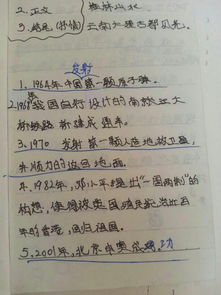 2.正文 桂林山水
3.结尾(抒情)
发射
1.1964年中国第一颗原子弹。
2.1968我国自行设计的南京长江大
桥建成通车。
3.1970 发射第一颗人造地球卫星,
并顺利的返回地面。
4.1982年,邓小平提出"一国两制"的
构想,使得被英国殖民
年的香港,回归祖国。
5.2001年,北京申奥成功